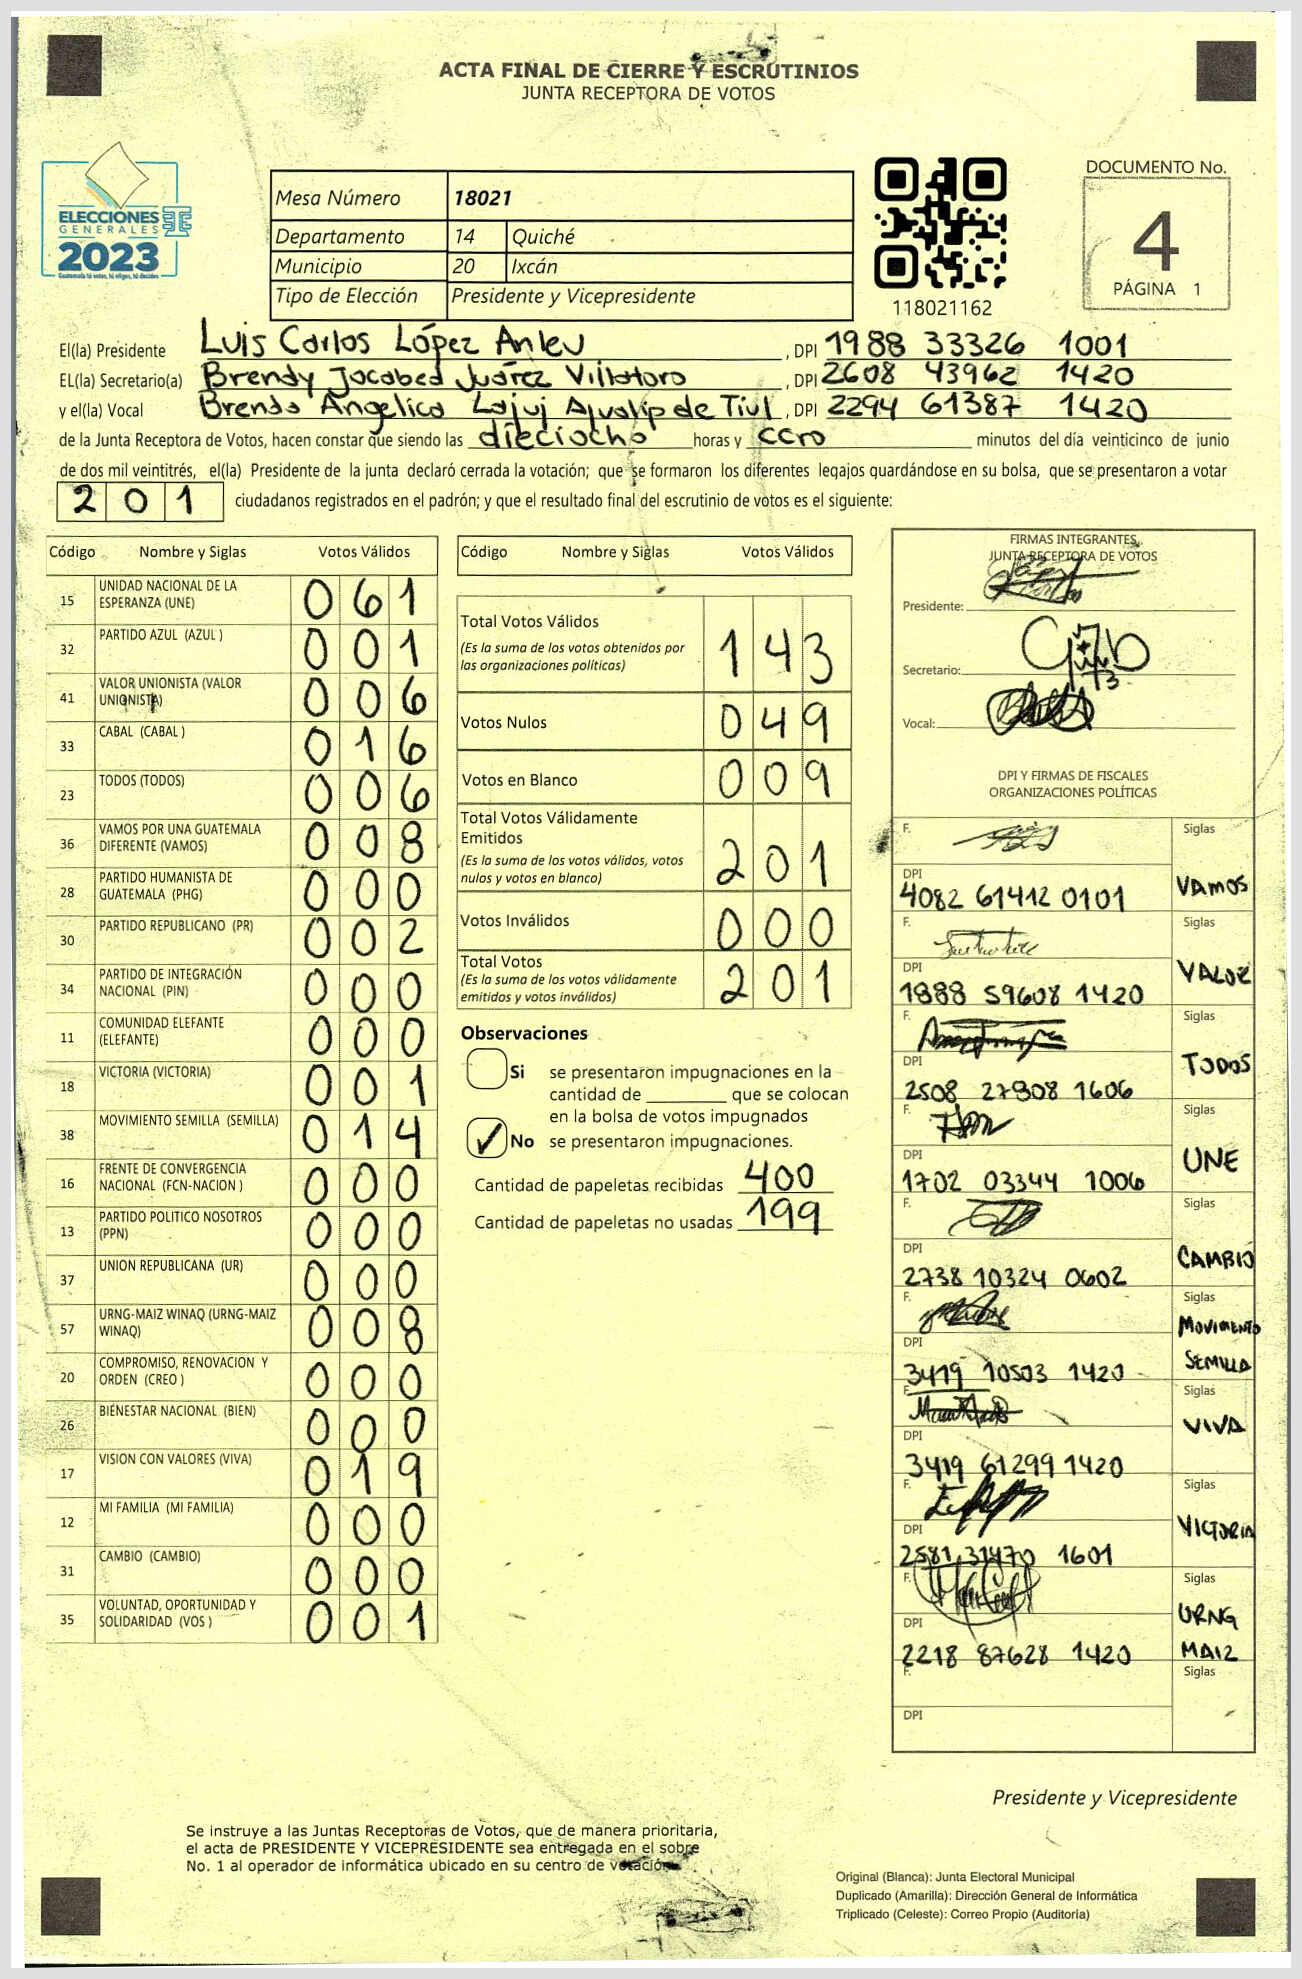 ACTA FINAL DE CIERRE Y ESCRUTINIOS
JUNTA RECEPTORA DE VOTOS
ELECCIONES
GENERALES
2023
Guatemala tú votas, tú eliges, tú decides
Mesa Número 18021
Departamento 14 Quiché
Municipio 20 Ixcán
Tipo de Elección Presidente y Vicepresidente
118021162
DOCUMENTO No.
4
PÁGINA 1
El(la) Presidente Luis Carlos López Anleu , DPI 1988 33326 1001
EL(la) Secretario(a) Brendy Jocabed Juárez Villatoro , DPI 2608 43962 1420
y el(la) Vocal Brenda Angelica Lajuj Ajualip de Tiul , DPI 2294 61387 1420
de la Junta Receptora de Votos, hacen constar que siendo las dieciocho horas y cero minutos del día veinticinco de junio
de dos mil veintitrés, el(la) Presidente de la junta declaró cerrada la votación; que se formaron los diferentes legajos guardándose en su bolsa, que se presentaron a votar
201 ciudadanos registrados en el padrón; y que el resultado final del escrutinio de votos es el siguiente:
Código Nombre y Siglas Votos Válidos
15 UNIDAD NACIONAL DE LA ESPERANZA (UNE) 061
32 PARTIDO AZUL (AZUL ) 001
41 VALOR UNIONISTA (VALOR UNIONISTA) 006
33 CABAL (CABAL ) 016
23 TODOS (TODOS) 006
36 VAMOS POR UNA GUATEMALA DIFERENTE (VAMOS) 008
28 PARTIDO HUMANISTA DE GUATEMALA (PHG) 000
30 PARTIDO REPUBLICANO (PR) 002
34 PARTIDO DE INTEGRACIÓN NACIONAL (PIN) 000
11 COMUNIDAD ELEFANTE (ELEFANTE) 000
18 VICTORIA (VICTORIA) 001
38 MOVIMIENTO SEMILLA (SEMILLA) 014
16 FRENTE DE CONVERGENCIA NACIONAL (FCN-NACION ) 000
13 PARTIDO POLITICO NOSOTROS (PPN) 000
37 UNION REPUBLICANA (UR) 000
57 URNG-MAIZ WINAQ (URNG-MAIZ WINAQ) 008
20 COMPROMISO, RENOVACION Y ORDEN (CREO ) 000
26 BIENESTAR NACIONAL (BIEN) 000
17 VISION CON VALORES (VIVA) 019
12 MI FAMILIA (MI FAMILIA) 000
31 CAMBIO (CAMBIO) 000
35 VOLUNTAD, OPORTUNIDAD Y SOLIDARIDAD (VOS ) 001
Código Nombre y Siglas Votos Válidos
Total Votos Válidos 143
(Es la suma de los votos obtenidos por
las organizaciones políticas)
Votos Nulos 049
Votos en Blanco 009
Total Votos Válidamente
Emitidos 201
(Es la suma de los votos válidos, votos
nulos y votos en blanco)
Votos Inválidos 000
Total Votos 201
(Es la suma de los votos válidamente
emitidos y votos inválidos)
Observaciones
Si se presentaron impugnaciones en la
cantidad de ________ que se colocan
en la bolsa de votos impugnados
No se presentaron impugnaciones.
Cantidad de papeletas recibidas 400
Cantidad de papeletas no usadas 199
FIRMAS INTEGRANTES,
JUNTA RECEPTORA DE VOTOS
Presidente:
Secretario:
Vocal:
DPI Y FIRMAS DE FISCALES
ORGANIZACIONES POLÍTICAS
F. Siglas
DPI VAMOS
4082 61412 0101
F. Siglas
DPI VALOR
1888 59608 1420
F. Siglas
DPI TODOS
2508 27908 1606
F. Siglas
DPI UNE
1702 03344 1006
F. Siglas
DPI CAMBIO
2738 10324 0602
F. Siglas
DPI MOVIMIENTO SEMILLA
3419 10503 1420
F. Siglas
DPI VIVA
3419 61299 1420
F. Siglas
DPI VICTORIA
2581 31470 1601
F. Siglas
DPI URNG MAIZ
2218 87628 1420
F. Siglas
DPI
Presidente y Vicepresidente
Se instruye a las Juntas Receptoras de Votos, que de manera prioritaria,
el acta de PRESIDENTE Y VICEPRESIDENTE sea entregada en el sobre
No. 1 al operador de informática ubicado en su centro de votación.
Original (Blanca): Junta Electoral Municipal
Duplicado (Amarilla): Dirección General de Informática
Triplicado (Celeste): Correo Propio (Auditoría)